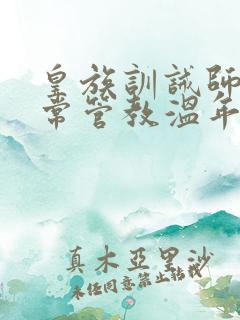 皇族訓誡師
常管教溫年
真木亞里沙
未经同意禁止转载